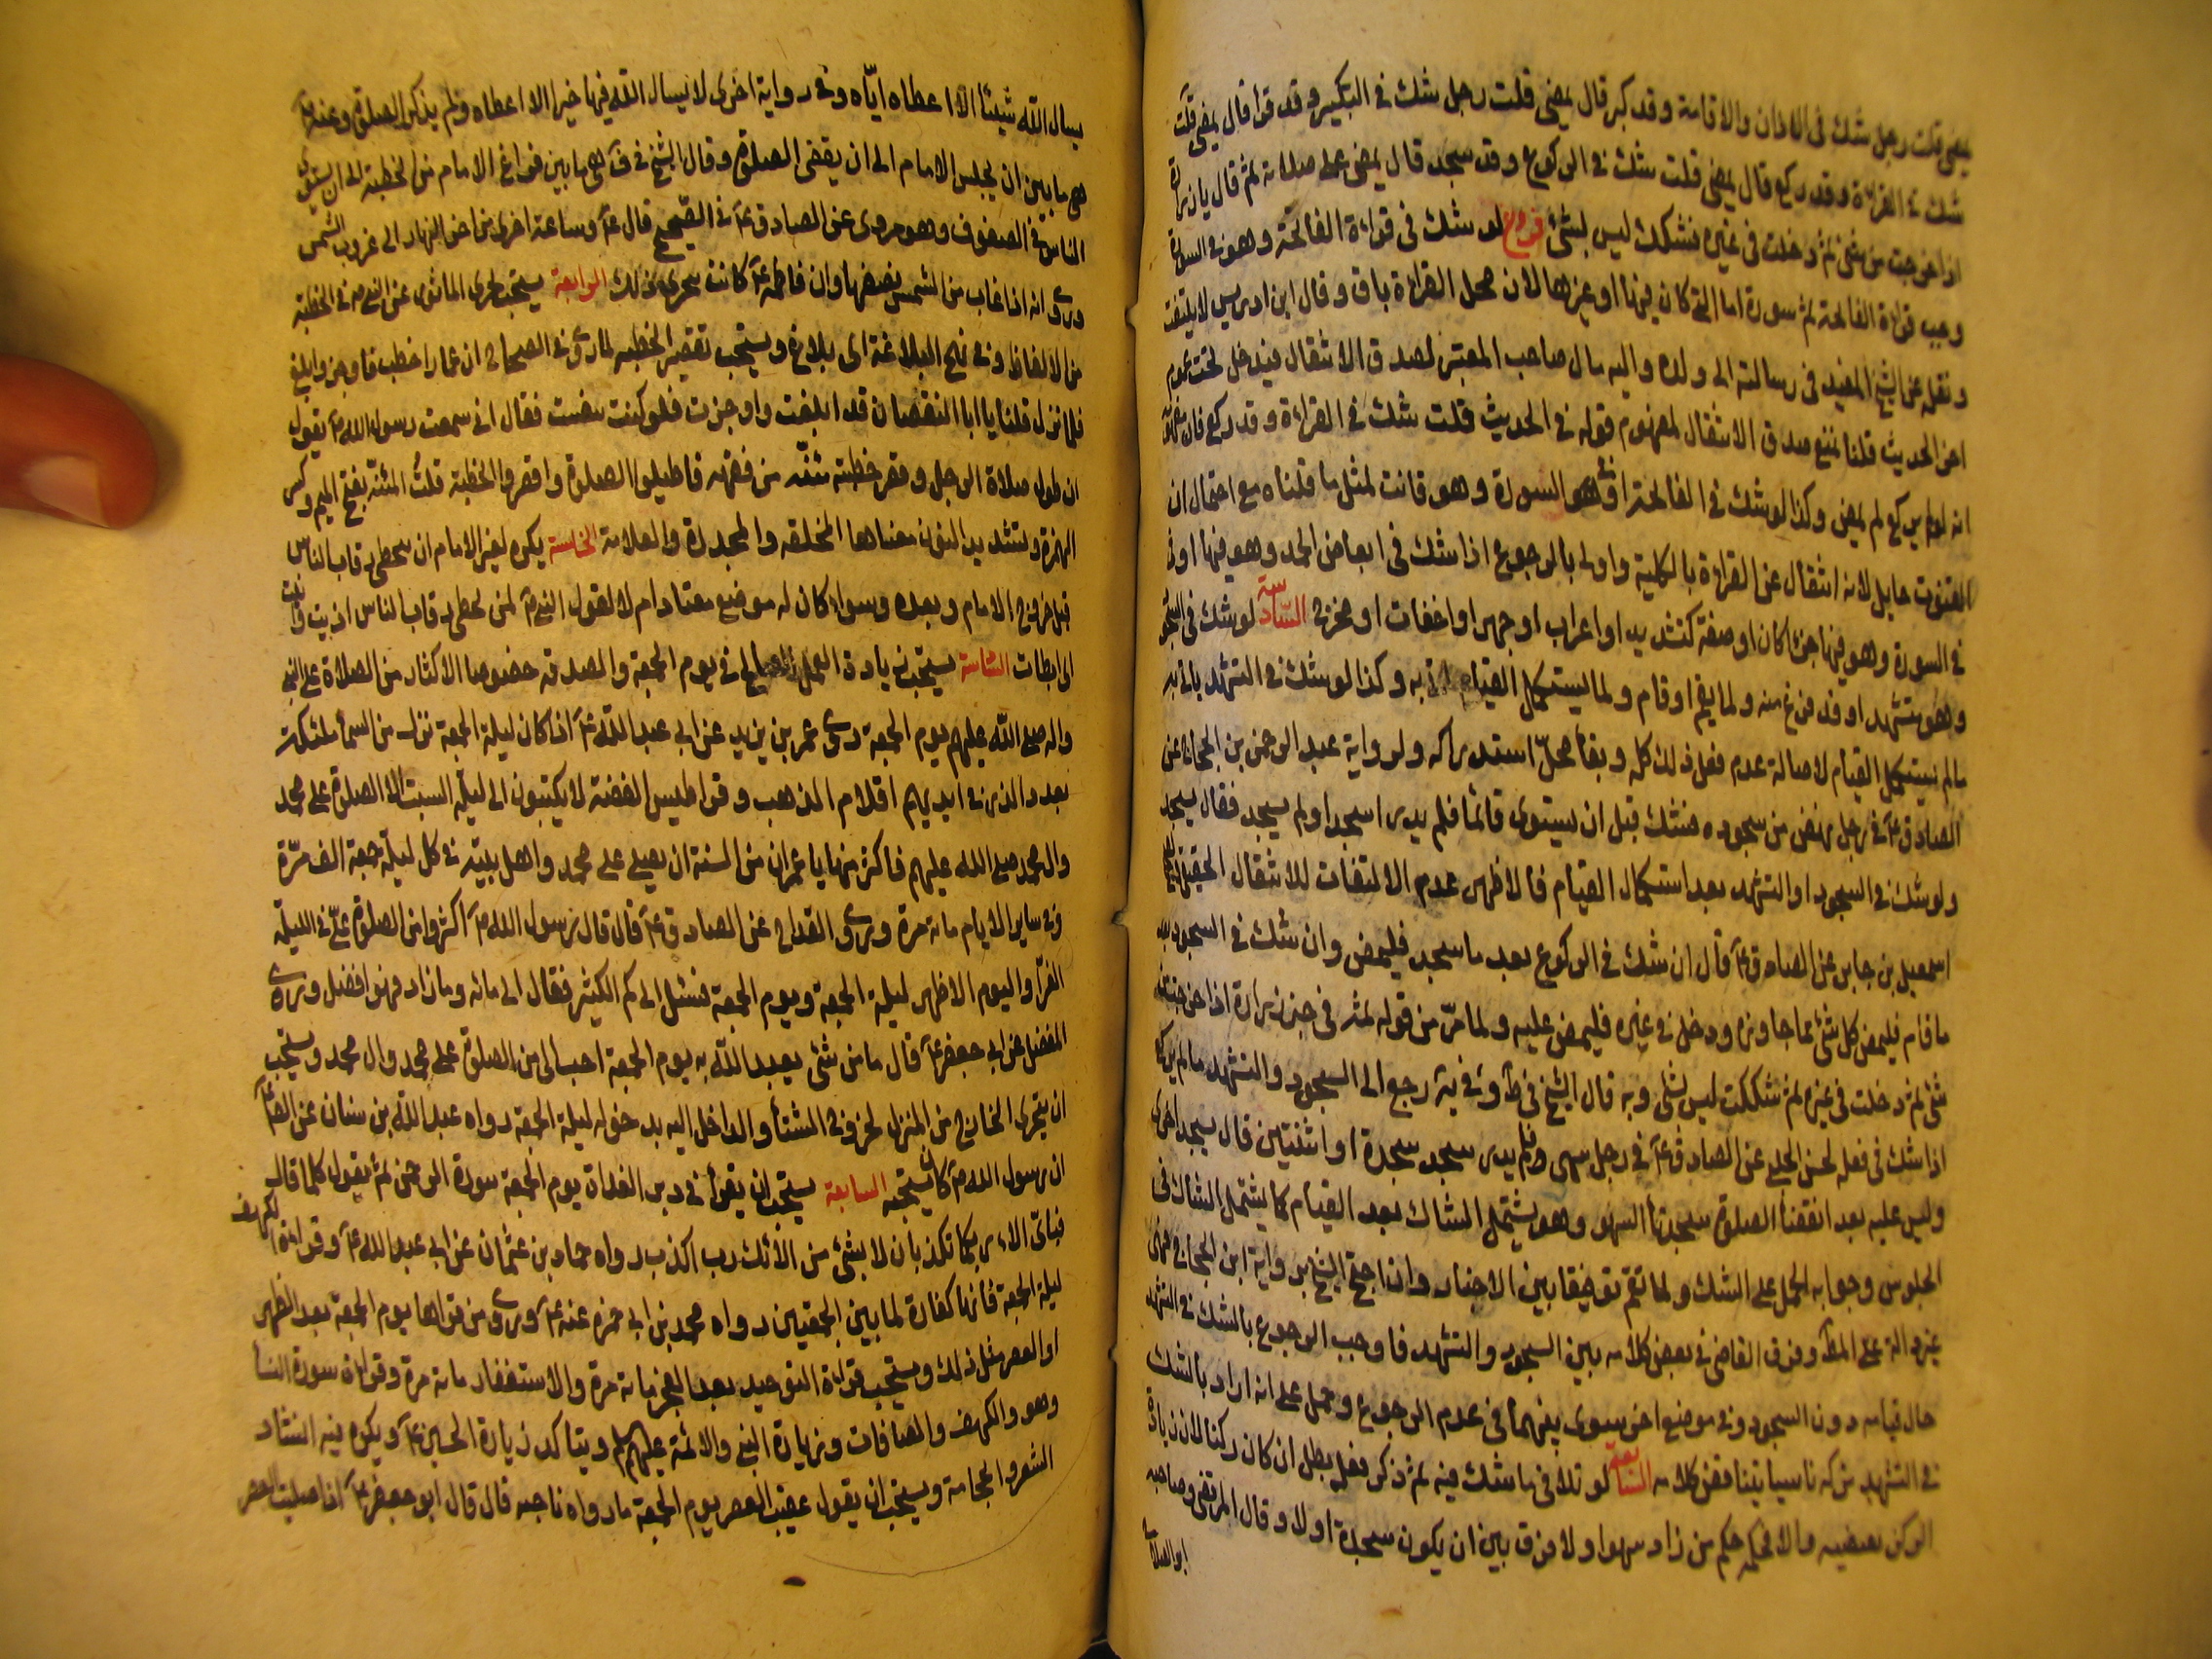 يمضى قلت رجل شك فى الاذان والاقامة وقد كبر قال يمضى قلت رجل شك فى التكبير وقد قرأ قال يمضى قلت
شك فى القراءة وقد ركع قال يمضى قلت شك فى الركوع وقد سجد قال يمضى على صلاته ثم قال يا زرارة
اذا خرجت من شئ ثم دخلت فى غيره فشكك ليس بشئ فروع لو شك فى قراءة الفاتحة وهو فى السورة
وجب قراءة الفاتحة ثم سورة اما التى كان فيها او غيرها لان محل القراءة باق وقال ابن ادريس لا يلتفت
ونقله عن الشيخ المفيد فى رسالته الى ولده واليه مال صاحب المعتبر لصدق الانتقال فيدخل تحت عموم
اخر الحديث قلنا نمنع صدق الانتقال لمفهوم قوله فى الحديث قلت شك فى القراءة وقد ركع فان مفهومه
انه لو لم يركع لم يمض وكذا لو شك فى الفاتحة او السورة وهو قانت لمثل ما قلناه مع احتمال ان
القنوت حايل لانه انتقال عن القراءة بالكلية واولى بالرجوع اذا شك فى ابعاض الحمد وهو فيها او
فى السورة وهو فيها جزءا كان او صفة كتشديد او اعراب او جهر او اخفات او مخرج السادسة لو شك فى السجود
وهو متشهد او قد فرغ منه ولما يقم او قام ولما يستكمل القيام اتى به وكذا لو شك فى التشهد ياتى به
ما لم يستكمل القيام لاصالة عدم فعل ذلك كله وبقاء محل استدراكه ولرواية عبد الرحمن بن الحجاج عن
الصادق ع فى رجل نهض من سجوده فشك قبل ان يستوى قائما فلم يدر اسجد او لم يسجد فقال يسجد
ولو شك فى السجود او التشهد بعد استكمال القيام فالاظهر عدم الالتفات للانتقال الحقيقى
اسمعيل بن جابر عن الصادق ع قال ان شك فى الركوع بعد ما سجد فليمض وان شك فى السجود بعد
ما قام فليمض كل شئ مما جاوزه ودخل فى غيره فليمض عليه ولما مر من قوله ثم فى خبر زرارة اذا خرجت من
شئ ثم دخلت فى غيره ثم شككت ليس بشئ وبه قال الشيخ فى ط وفى ية رجع الى السجود والتشهد ما لم يركع
اذا شك فى فعله لحسن الحلبى عن الصادق ع فى رجل سهى فلم يدر سجد سجدة او اثنتين قال يسجد اخرى
وليس عليه بعد انقضاء الصلوة سجدتا السهو وهو يشتمل الشاك بعد القيام كما يشتمل الشاك فى
الجلوس وجوابه الحمل على الشك ولما يقم توفيقا بين الاخبار وان احتج الشيخ برواية ابن الحجاج فهى
غير دالة على المط وفرق القاضى فى بعض كلامه بين السجود والتشهد فاوجب الرجوع بالشك فى التشهد
حال قيامه دون السجود وفى موضع اخر سوى بينهما فى عدم الرجوع وحمل على انه اراد بالشك
فى التشهد تركه ناسيا يتناقض كلامه السابعة لو تلافى ما شك فيه ثم ذكر فعله بطل ان كان ركنا لان زيادة
الركن بعضيه والا فحكمه حكم من زاد سهوا ولا فرق بين ان يكون سجدة اولا وقال المرتضى وصاحبه
ابو الصلاح
يسال الله شيئا الا اعطاه اياه وفى رواية اخرى لا يسال الله فيها خيرا الا اعطاه ولم يذكر الصلوة وعنه ص
هى ما بين ان يجلس الامام الى ان يقضى الصلوة وقال الشيخ فى ف هى ما بين فراغ الامام من الخطبة الى ان يستوى
الناس فى الصفوف وهو مروى عن الصادق ع فى الصحيح قال ع وساعة اخرى من اخر النهار الى غروب الشمس
وروى انه اذا غاب من الشمس نصفها وان فاطمة ع كانت تتحرى ذلك الرابعة يستحب تحرى الماثور عن النبى ص فى الخطبة
من الالفاظ وفى نهج البلاغة اى بلاغ ويستحب تقصير الخطبه لما روى فى الصحاح ان عمارا خطب فاوجز وابلغ
فلما نزل قلنا يا ابا اليقضان قد ابلغت واوجزت فلو كنت تنفست فقال انى سمعت رسول الله ص يقول
ان طول صلاة الرجل وقصر خطبته مئنة من فقهه فاطيلوا الصلوة واقصروا الخطبة قلت المئنة بفتح الميم وكسر
الهمزة وتشديد النون معناها المخلقه والمجدرة والعلامة الخامسة يكره لغير الامام ان يتخطى رقاب الناس
قبل خروج الامام وبعده وسواء كان له موضع معتاد ام لا لقول النبى ص لمن تخطى رقاب الناس اذيت وانيت
اى ابطات السادسة يستحب زيادة العمل الصالح فى يوم الجمعة والصدقه خصوصا الاكثار من الصلاة على النبى
واله صلى الله عليهم يوم الجمعة روى عمر بن يزيد عن ابى عبد الله ع اذا كان ليلة الجمعة نزل من السماء ملئكة
بعدد الذر فى ايديهم اقلام الذهب وقراطيس الفضة لا يكتبون الى ليلة السبت الا الصلوة على محمد
وال محمد صلى الله عليهم فاكثر منها يا عمر ان من السنة ان يصلى على محمد واهل بيته فى كل ليلة جمعة الف مرة
وفى ساير الايام مائة مرة وروى القداح عن الصادق ع قال قال رسول الله ص اكثروا من الصلوة على فى الليلة
الغرا واليوم الازهر ليلة الجمعة ويوم الجمعة فسئل الى كم الكثير فقال الى مائه وما زاد فهو افضل وروى
المفضل عن ابى جعفر ع قال ما من شئ يعبد الله به يوم الجمعة احب الى من الصلوة على محمد وال محمد ويستحب
ان يتحرى الخارج من المنزل لخروجه فى الشتاء والداخل اليه بدخوله ليلة الجمعه رواه عبد الله بن سنان عن الصادق ع
ان رسول الله ص كان يستحبه السابعة يستحب ان يقرأ فى دبر الغداة يوم الجمعة سورة الرحمن ثم يقول كلما قال
فباى الاء ربكما تكذبان لا بشئ من الائك رب اكذب رواه حماد بن عثمان عن ابى عبد الله ع وقراءة الكهف
ليلة الجمعة فانها كفارة لما بين الجمعتين رواه محمد بن ابى حمزه عنه ع وروى من قراها يوم الجمعة بعد الظهر
او العصر مثل ذلك ويستحب قراءة التوحيد بعد الفجر مائة مرة والاستغفار مائة مرة وقراءة سورة النساء
وهود والكهف والصافات وزيارة النبى والائمة عليهم السلم ويتاكد زيارة الحسين ع ويكره فيه انشاد
الشعر والحجامة ويستحب ان يقول عقيب العصر يوم الجمعة ما رواه ناجيه قال قال ابو جعفر ع اذا صليت العصر